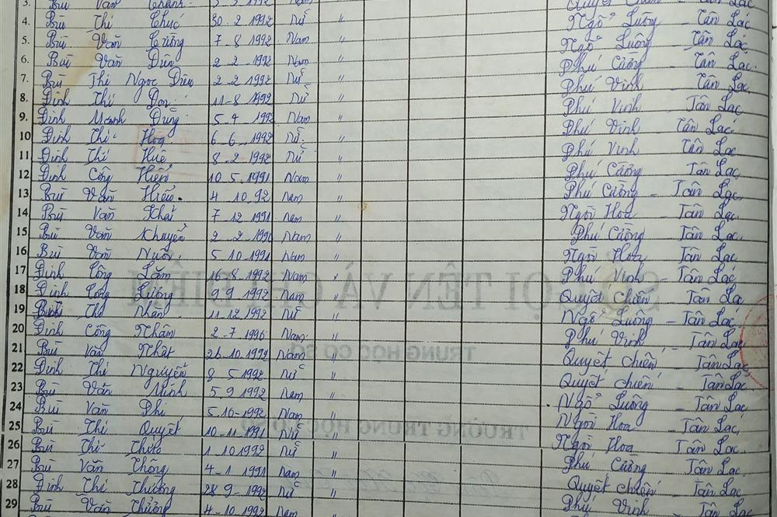 3. Bùi Văn 3-5-1992 Nam Quyết Chiến Tân Lạc
4. Bùi Thị Chúc 30-2-1992 Nữ " Ngổ Luông - Tân Lạc
5. Bùi Văn Cường 7-8-1992 Nam " Ngổ Luông - Tân Lạc
6. Bùi Văn Diện 2-2-1992 Nam " Phú Cường - Tân Lạc
7. Bùi Thị Ngọc Diệu 2-2-1992 Nữ " Phú Vinh Tân Lạc
8. Đinh Thị Đơn 11-8-1992 Nữ " Phú Vinh - Tân Lạc
9. Đinh Mạnh Dũng 5-4-1992 Nam " Phú Vinh Tân Lạc
10 Đinh Thị Hoa 6-6-1992 Nữ " Phú Vinh Tân Lạc
11 Đinh Thị Huê 8-2-1992 Nữ " Phú Vinh Tân Lạc
12 Đinh Công Hiển 10-5-1991 Nam " Phú Cường Tân Lạc
13 Bùi Văn Hiếu 4-10-92 Nam " Phú Cường - Tân Lạc
14 Bùi Văn Khải 7-12-1991 Nam " Ngòi Hoa - Tân Lạc
15 Bùi Văn Khuyến 2-2-1990 Nam " Phú Cường - Tân Lạc
16 Bùi Văn 5-10-1991 Nam " Ngòi Hoa Tân Lạc
17 Đinh Công 16-8-1992 Nam " Phú Vinh - Tân Lạc
18 Đinh Công Lường 9-9-1992 Nam " Quyết Chiến - Tân Lạc
19 Bùi Thị Nhàn 11-12-1992 Nữ " Ngổ Luông - Tân Lạc
20 Đinh Công Nhân 2-7-1996 Nam " Phú Vinh - Tân Lạc
21 Bùi Văn Nhất 26-10-1992 Nam " Quyết chiến - Tân Lạc
22 Đinh Thị Nguyễn 8-5-1992 Nữ " Quyết chiến - Tân Lạc
23 Bùi Văn Ninh 5-9-1992 Nam " Ngổ Luông - Tân Lạc
24 Bùi Văn Phi 5-10-1992 Nam " Ngòi Hoa - Tân Lạc
25 Bùi Thị Quyết 10-11-1991 Nữ " Ngòi Hoa - Tân Lạc
26 Bùi Thị 1-10-1992 Nữ " Phú Cường - Tân Lạc
27 Bùi Văn Thông 4-1-1991 Nam " Quyết chiến - Tân Lạc
28 Đinh Thị Thương 28-9-1992 Nữ " Phú Vinh - Tân Lạc
29 Bùi Văn Thưởng 4-10-1992 Nam "